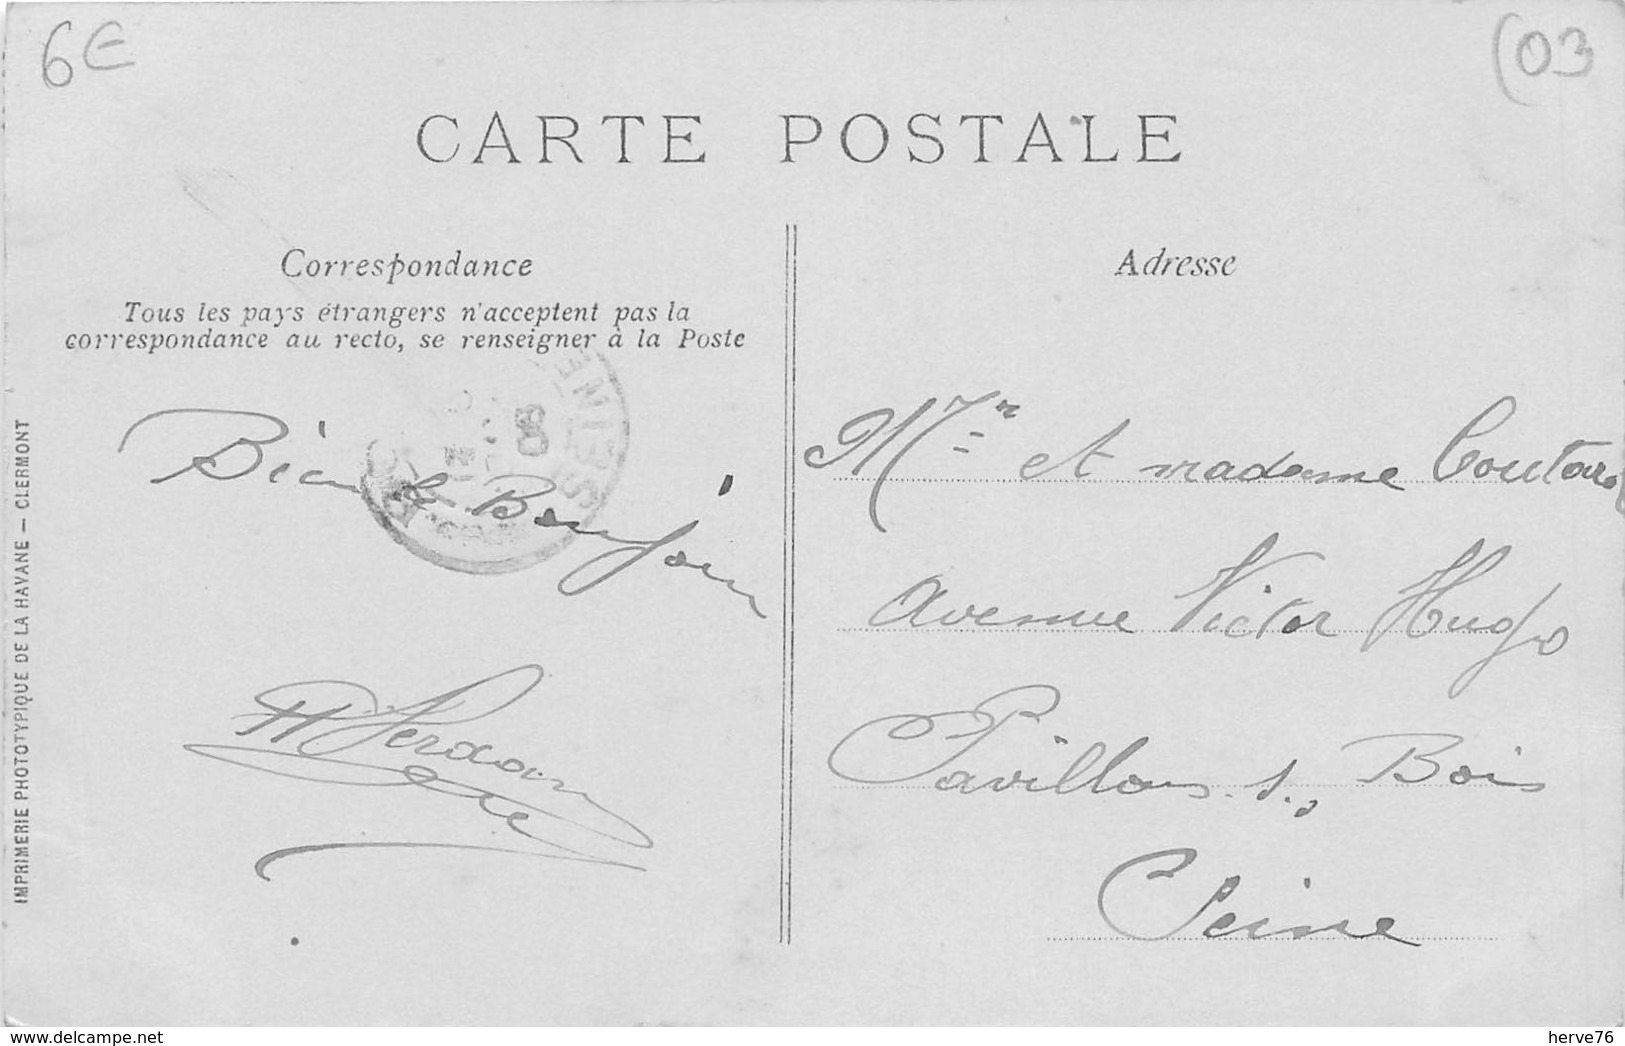 6€
(03
CARTE POSTALE
Correspondance
Tous les pays étrangers n'acceptent pas la
correspondance au recto, se renseigner à la Poste
Bien le Bonjour
Adresse
Mr et madame
avenue Victor Hugo
Pavillons s. Bois
Seine
IMPRIMERIE PHOTOTYPIQUE DE LA HAVANE — CLERMONT
www.delcampe.net
herve76